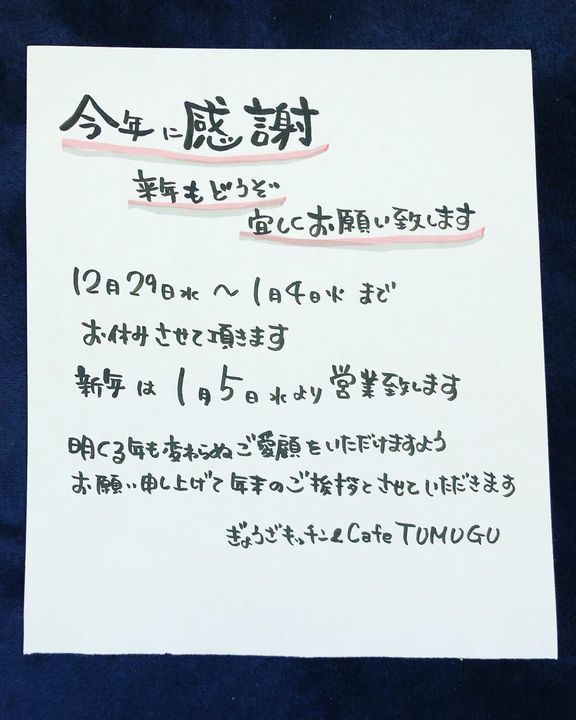 今年に感謝
来年もどうぞ
宜しくお願い致します
12月29日水 〜 1月4日火 まで
お休みさせて頂きます
新年は 1月5日水より営業致します
明くる年も変わらぬご愛顧をいただけますよう
お願い申し上げて年末のご挨拶とさせていただきます
ぎょうざキッチン&Cafe TOMOGU